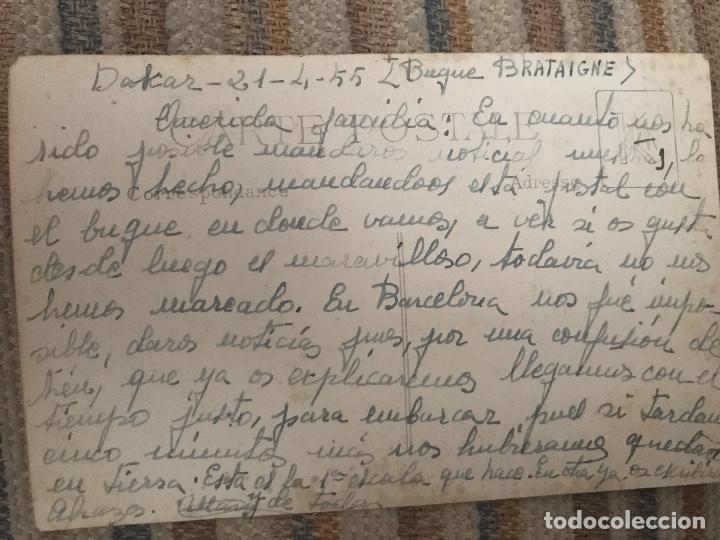 Dakar - 21-4-55 (Buque BRATAIGNE)
CARTE POSTALE
Querida familia: En cuanto nos ha
sido posible mandaros noticias nuestras, lo
hemos hecho, mandandoos esta postal con
Correspondance Adresse
el buque en donde vamos, a ver si os gusta
desde luego es maravilloso, todavía no nos
hemos mareado. En Barcelona nos fué impo-
sible, daros noticias pues, por una confusión de
trén, que ya os explicaremos llegamos con el
tiempo justo, para embarcar pues si tardan
cinco minutos más nos hubieramos quedado
en tierra. Esta es la 1ª escala que hace. En otra ya os escribire
Abrazos. de todos
todocoleccion.net